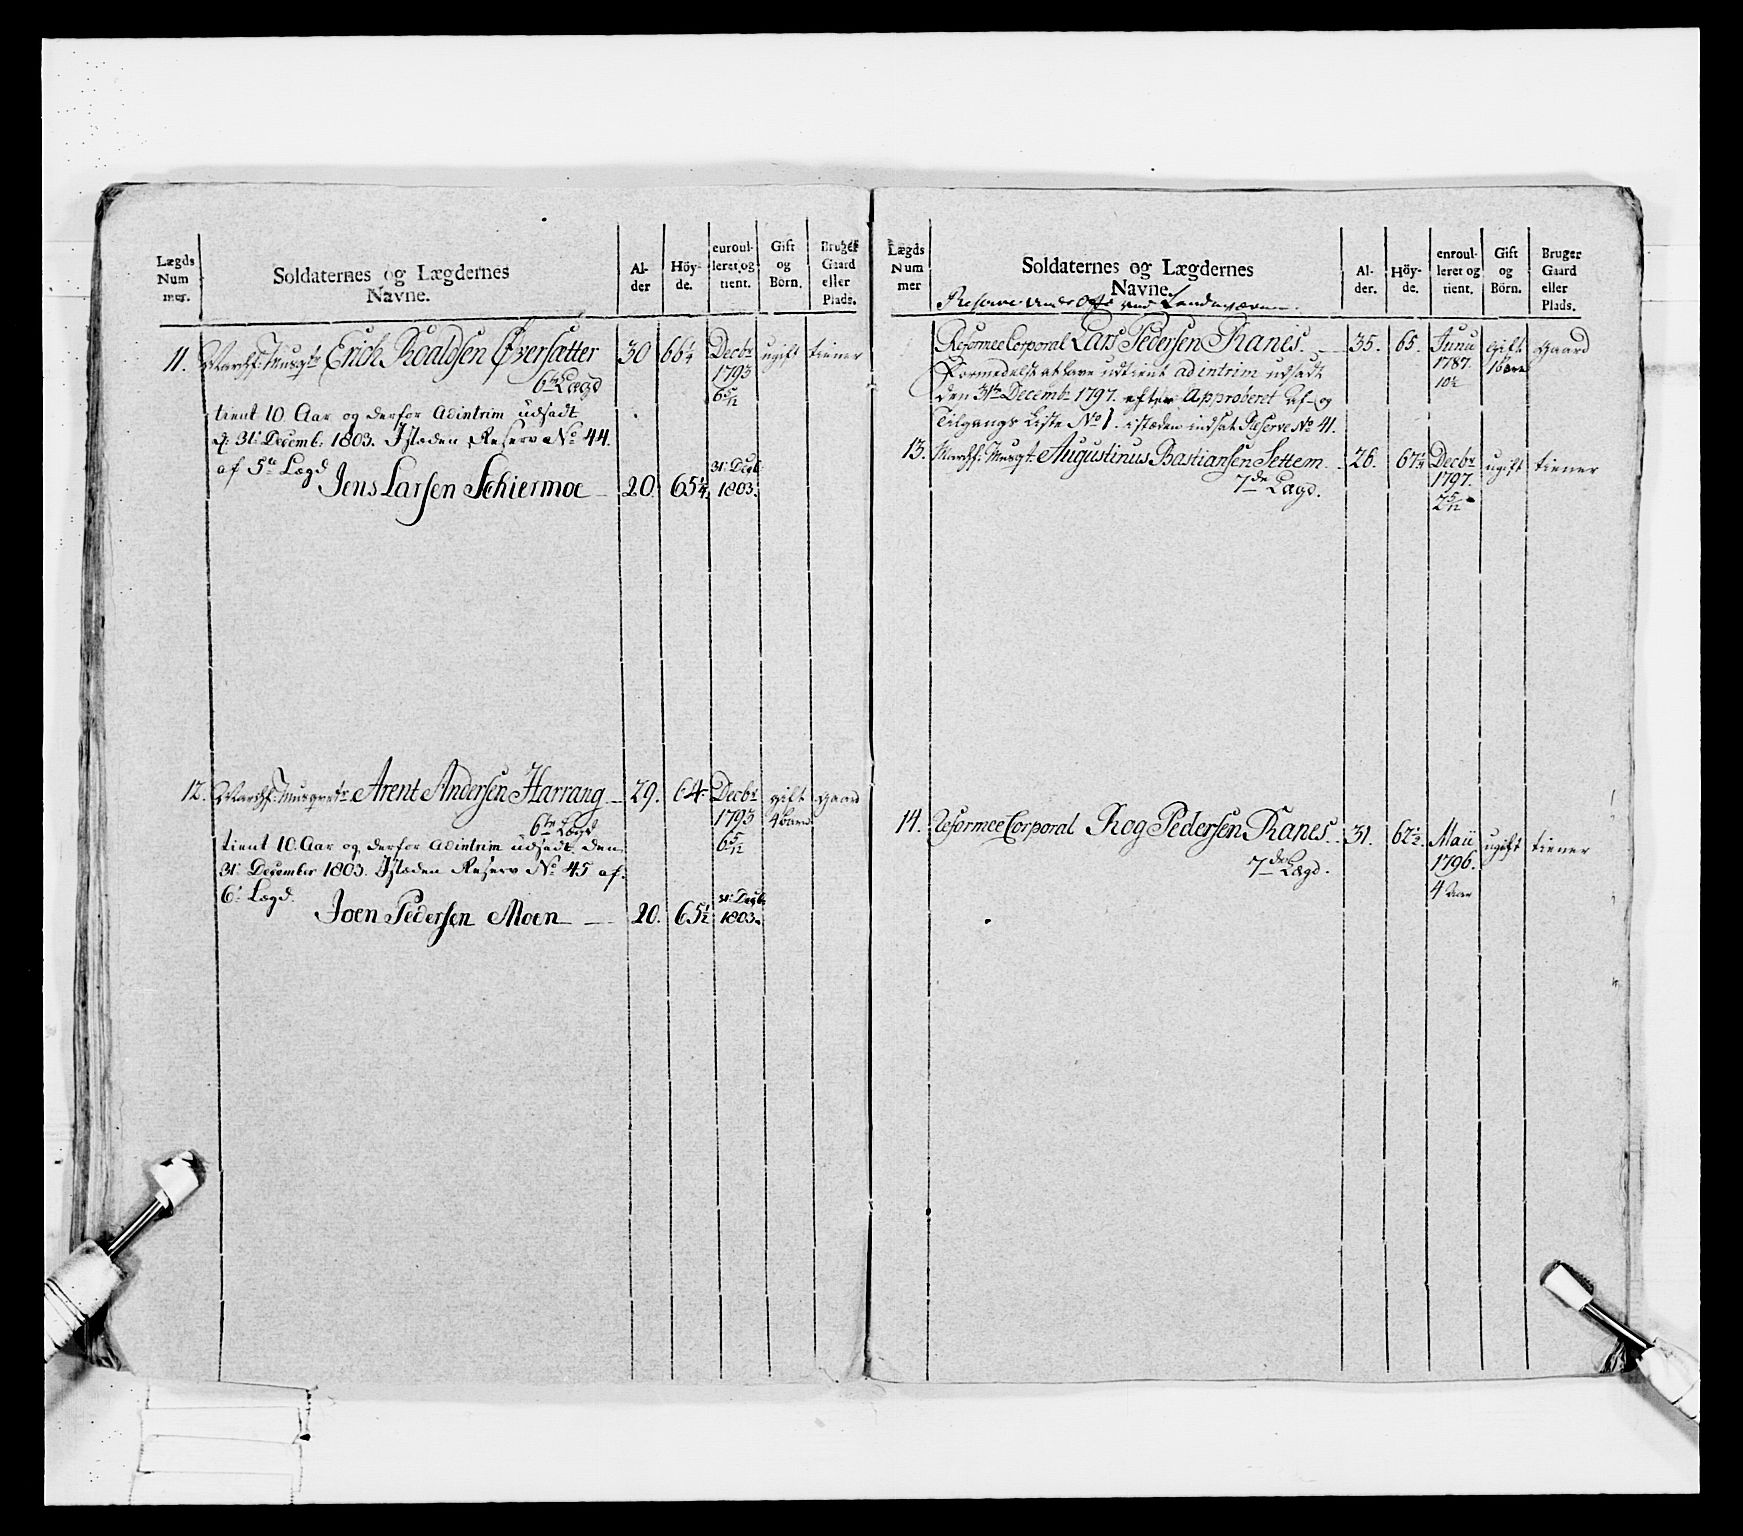 Lægds
Num
mer.
Soldaternes og Lægdernes
Navne.
Al-
der
Höy-
de.
euroul-
leret og
tient.
Gift
og
Börn.
Bruger
Gaard
eller
Plads.
11. Erich Roaldsen Øversætter 30 66¼ Decbr ugift tiener
6te Lægd 1793
6 5/12
tient 10 Aar og derfor ad intrim udsadt
d: 31: Decemb. 1803. I staden Reserv No 44.
af 5te Lægd 31: Decb.
Jens Larsen Schiermoe 20. 65¼ 1803.
12. Arent Andersen Harrang 29. 64. Decbr gift Gaard
6te Lægd 1793 4 barn
6 5/12
tient 10. Aar og derfor ad intrim udsadt den
31: December 1803. I staden Reserv No 45 af
6: Lægd. 31: Decb.
Joen Pedersen Moen 20. 65½ 1803.
Lægds
Num
mer
Soldaternes og Lægdernes
Navne.
Al-
der.
Höy-
de.
enroul-
leret og
tient.
Gift
og
Börn.
Bruger
Gaard
eller
Plads.
Reserve Under Off: ved Landeværnet.
Reformee Corporal Lars Pedersen Ranes. 35. 65. Junii gift Gaard
Formedelst at have udtient ad intrim udsadt 1787. 1 barn
den 31te Decembr 1797. efter Approberet Af- og 10½
Tilgangs Liste No 1. i stæden indsat Reserve No 41.
13. Augustinus Bastiansen Settem 26. 67¼ Decbr ugift tiener
7de Lægd. 1797.
2 5/12
14. Reformee Corporal Rog Pedersen Ranes. 31. 67½. Maii ugift tiener
7de Lægd. 1796.
4 Aar